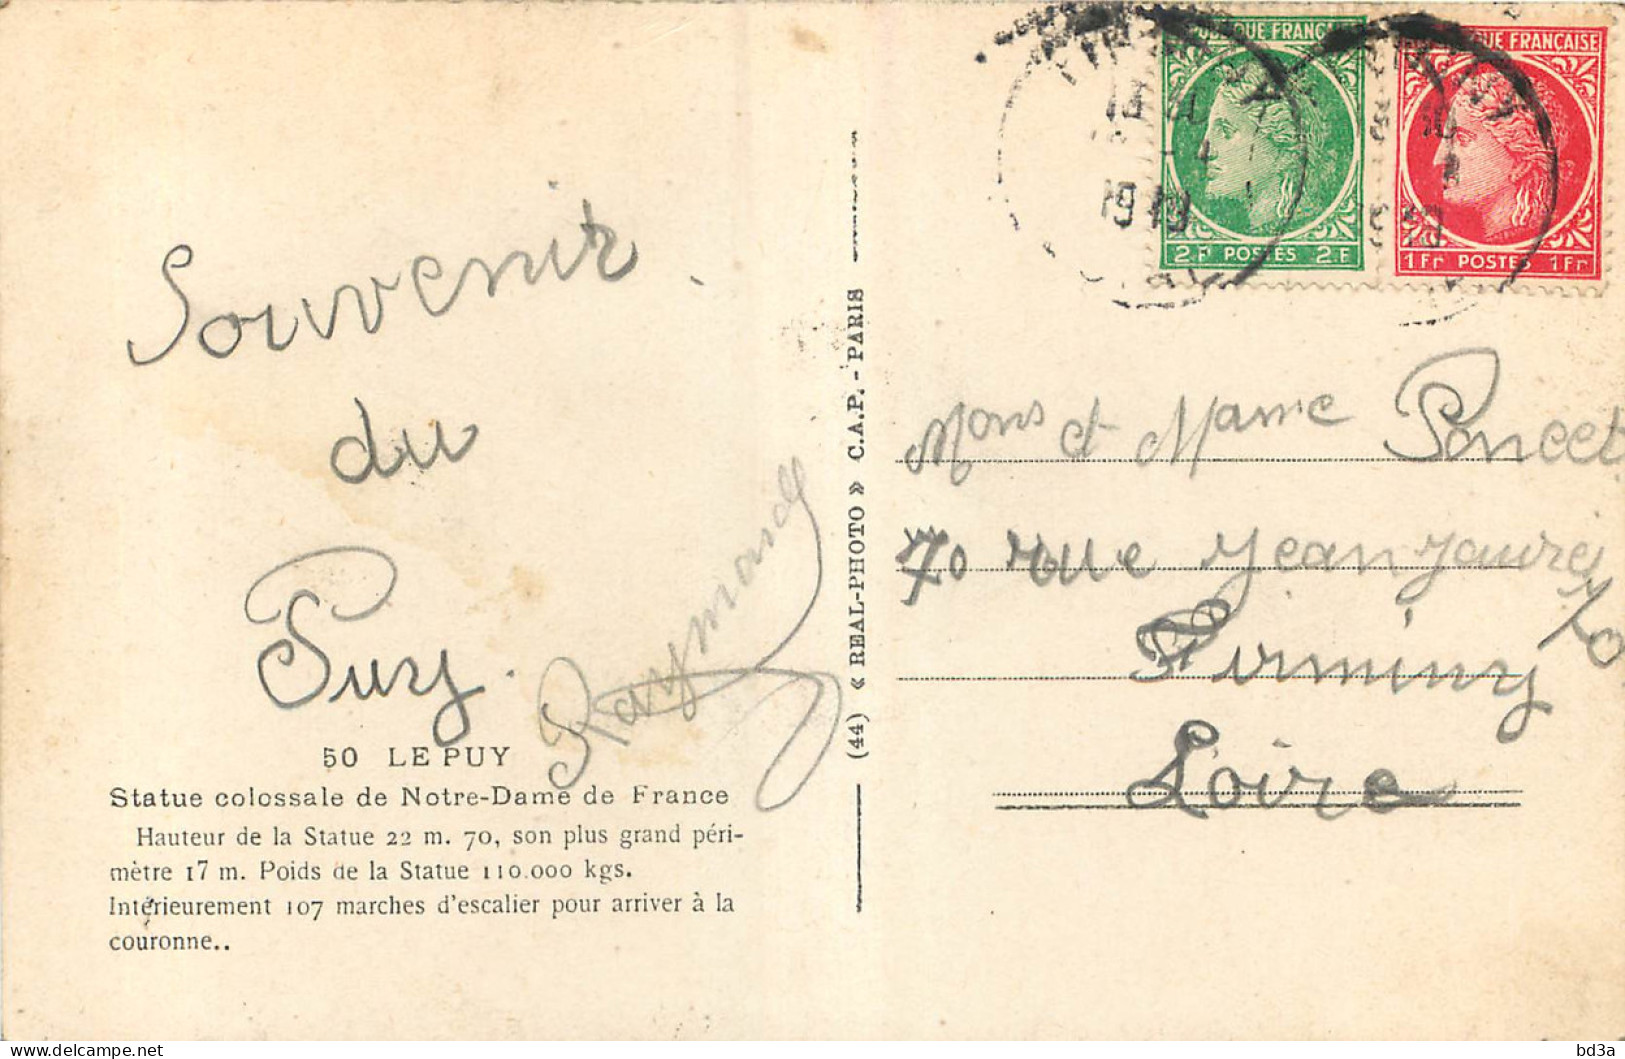 Souvenir
du
Puy.
Raymond
50 LE PUY
Statue colossale de Notre-Dame de France
Hauteur de la Statue 22 m. 70, son plus grand péri-
mètre 17 m. Poids de la Statue 110.000 kgs.
Intérieurement 107 marches d'escalier pour arriver à la
couronne..
(44) « REAL-PHOTO » C.A.P. - PARIS
FRANÇAISE
2F POSTES 2F
QUE FRANÇAISE
1Fr POSTES 1Fr
Mons et Mame Poncet
70 rue Jean Jaures 70
Firminy
Loire
bd3a